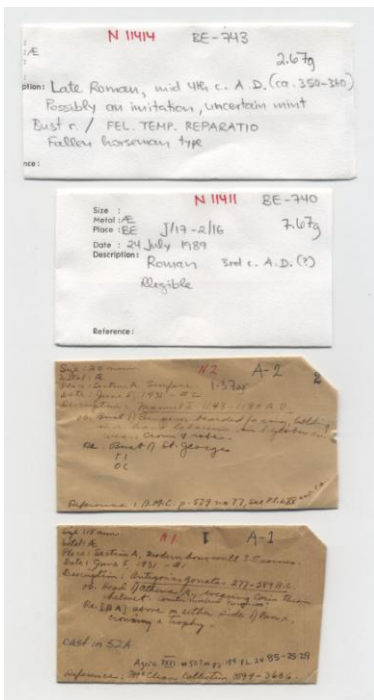 N 11414 BE-743
: Æ 2.67g
ption: Late Roman, mid 4th c. A.D. (ca. 350-360)
Possibly an imitation, uncertain mint
Bust r. / FEL. TEMP. REPARATIO
Fallen horseman type
nce:
N 11411 BE-740
Size :
Metal : Æ 7.67g
Place : BE J/17-2/16
Date : 24 July 1989
Description: Roman 3rd c. A.D. (?)
Illegible
Reference:
Size : 20 mm N2 A-2 2
Metal : Æ
Place : Section A, Surface
Date : June 5, 1931 - #2
Description : Manuel I 1143-1180 A.D.
Ob. Bust of bearded facing, holding
wears crown & robes.
Re. Bust of St. George
Reference : B.M.C. p. 579 no 77
Size : 18 mm N1 A-1
Metal : Æ
Place : Section A, modern house wall
Date : June 5, 1931 - #1
Description : Antigonus Gonatas 277-239 B.C.
Ob. Head of Athena r., wearing Corinthian
helmet
Re. above on either side of Pan r.,
crowning a trophy.
cast in 52A
Agora XXVI
Reference : McClean Collection